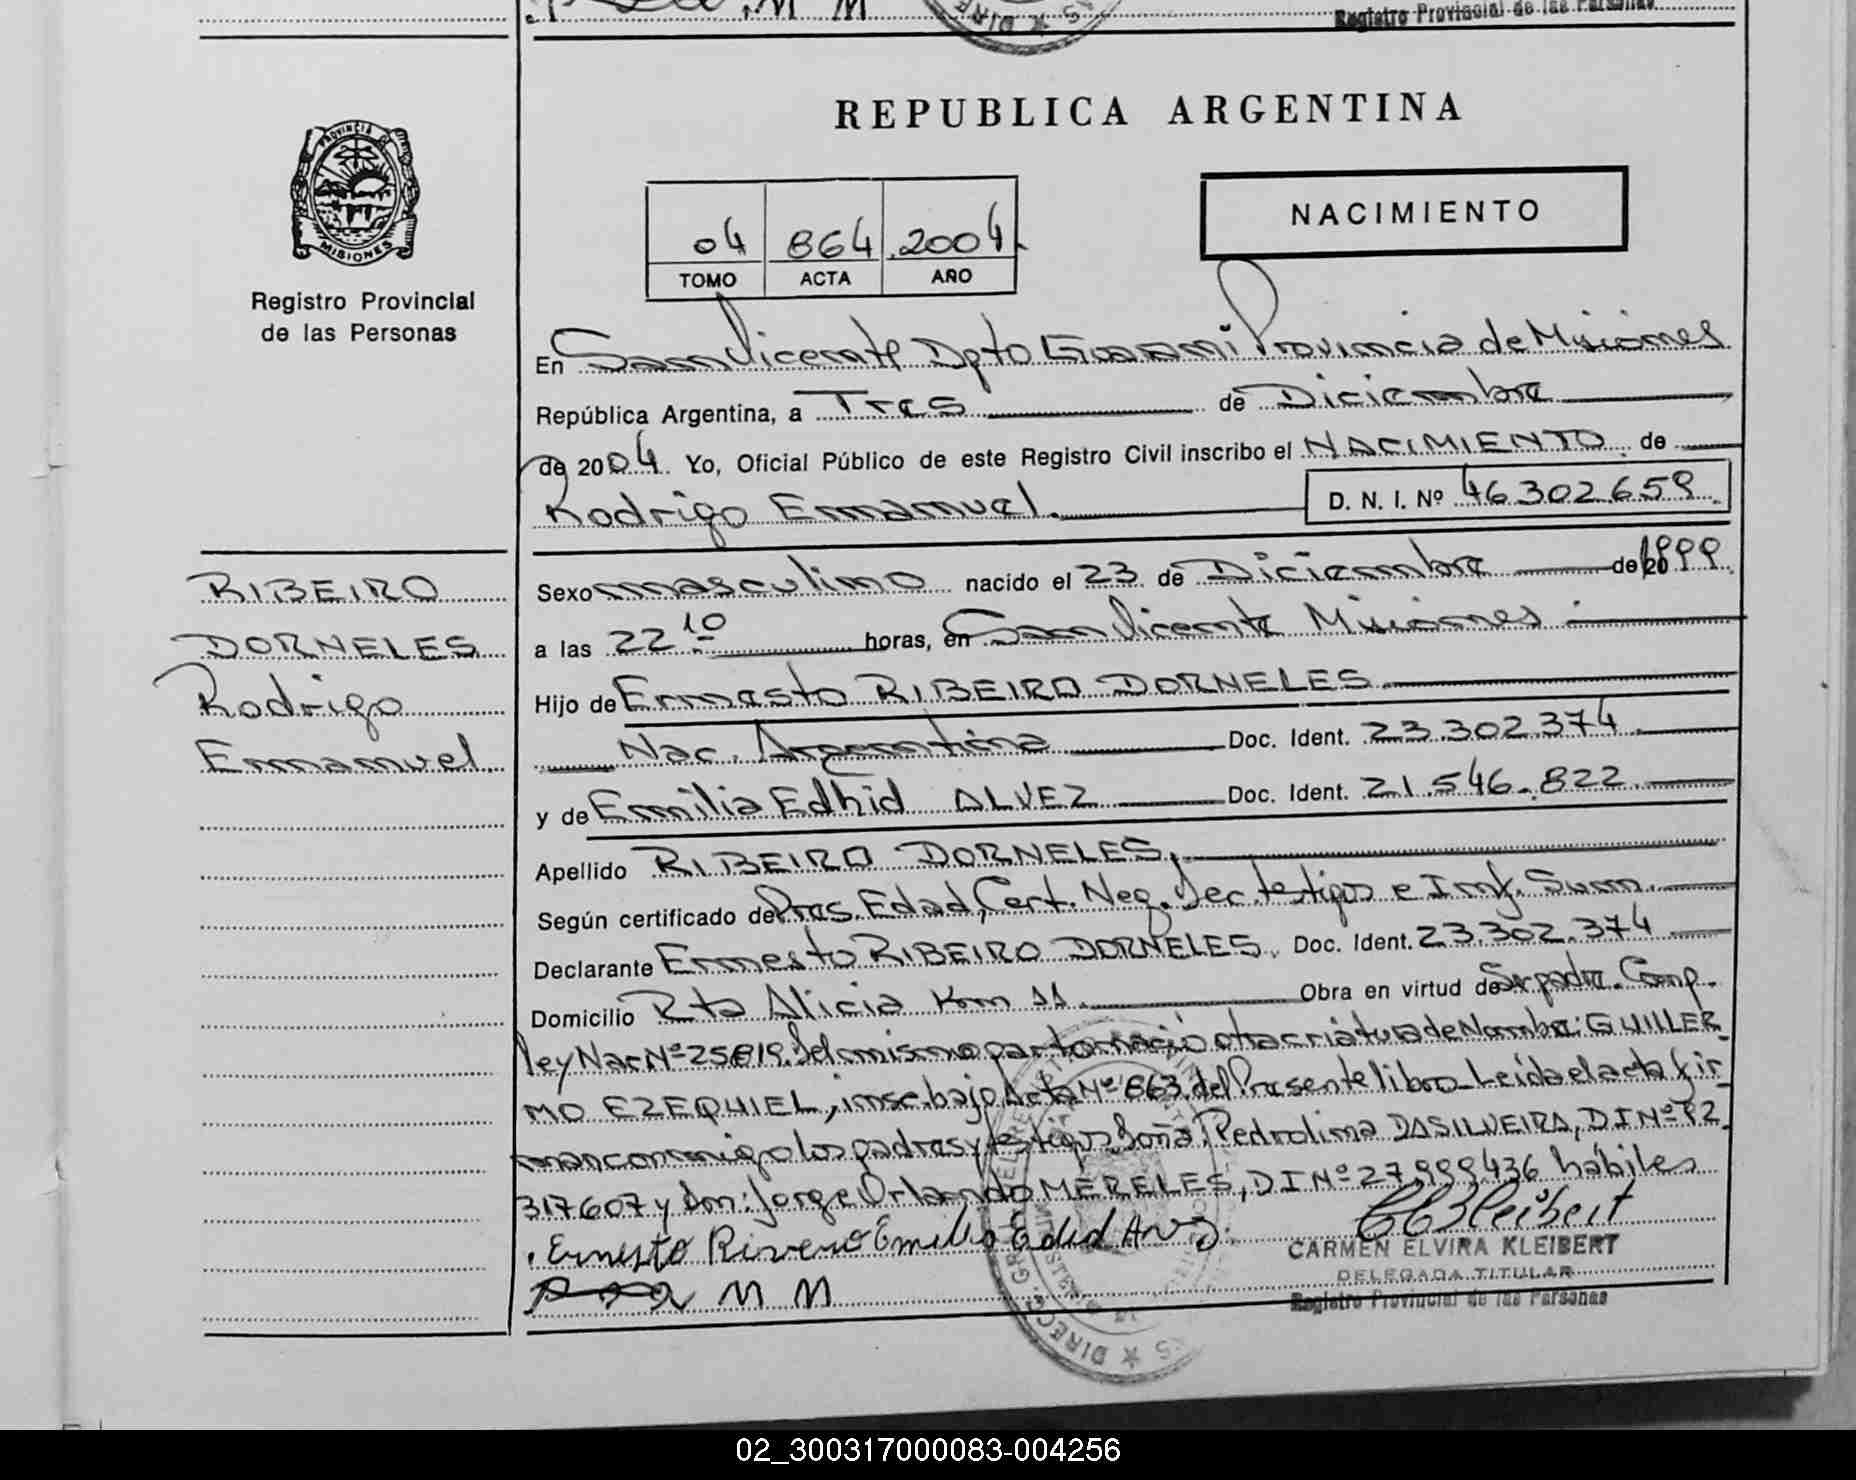 Registro Provincial de las Personas
REPUBLICA ARGENTINA
PROVINCIA
MISIONES
Registro Provincial
de las Personas
04 864 2004
TOMO ACTA AÑO
NACIMIENTO
En San Vicente Dpto Guarani Provincia de Misiones
República Argentina, a Tres de Diciembre
de 2004 Yo, Oficial Público de este Registro Civil inscribo el NACIMIENTO de
Rodrigo Emmanuel. D. N. I. Nº 46.302.659.
RIBEIRO
DORNELES
Rodrigo
Emmanuel
Sexo masculino nacido el 23 de Diciembre de 1999
a las 22 10 horas, en San Vicente Misiones
Hijo de Ernesto RIBEIRO DORNELES
Nac. Argentina Doc. Ident. 23.302.374
y de Emilia Edhid ALVEZ Doc. Ident. 21.546.822
Apellido RIBEIRO DORNELES,
Según certificado de Pres. Edad, Cert. Neg. Dec. testigos e Inf. Sum.
Declarante Ernesto RIBEIRO DORNELES. Doc. Ident. 23.302.374
Domicilio Rta Alicia Km 11 Obra en virtud de Ser padre. Comp.
ley Nac Nº 25819. Del mismo parto nació otra criatura de Nombre: GUILLER
MO EZEQUIEL, insc. bajo Acta Nº 863 del Presente libro_ Leída el acta fir_
man conmigo los padres y testigos Doña: Pedrolina DASILVEIRA, DI Nº 92.
317607 y don: Jorge Orlando MERELES, DI Nº 27.999436 hábiles
Ernesto Rivero Emilia Edid
CARMEN ELVIRA KLEIBERT
DELEGADA TITULAR
Registro Provincial de las Personas
02_300317000083-004256